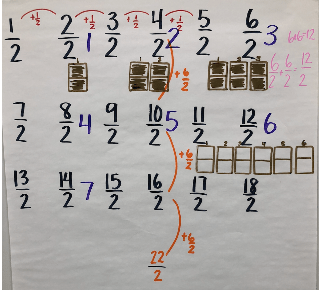 +1/2 +1/2 +1/2 +1/2
1/2 2/2 1 3/2 4/2 2 5/2 6/2 3
6+6=12
6/2 + 6/2 = 12/2
+6/2
7/2 8/2 4 9/2 10/2 5 11/2 12/2 6
+6/2
1 2 3 4 5 6
13/2 14/2 7 15/2 16/2 17/2 18/2
+6/2
22/2